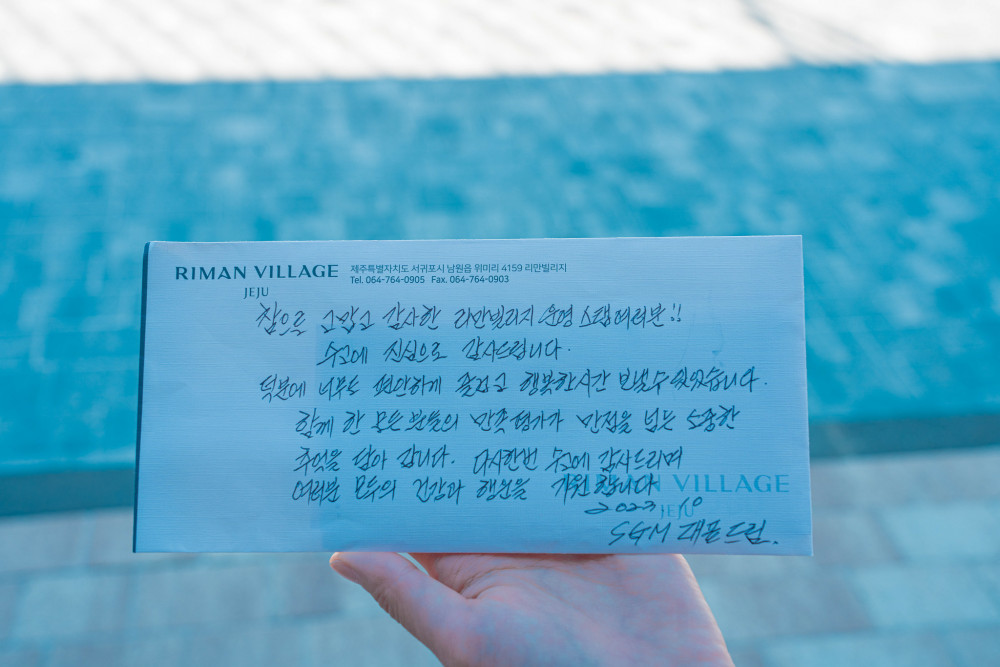 RIMAN VILLAGE
JEJU
제주특별자치도 서귀포시 남원읍 위미리 4159 리만빌리지
Tel. 064-764-0905 Fax. 064-764-0903
참으로 고맙고 감사한 리만빌리지 운영 스탭여러분!!
수고에 진심으로 감사드립니다.
덕분에 너무도 편안하게 즐겁고 행복한시간 보낼수 있었습니다.
함께 한 모든 분들의 만족평가가 만점을 넘는 소중한
추억을 담아 갑니다. 다시한번 수고에 감사드리며
여러분 모두의 건강과 행운을 기원합니다
RIMAN VILLAGE
JEJU
2023. 10
SGM 대표드림.